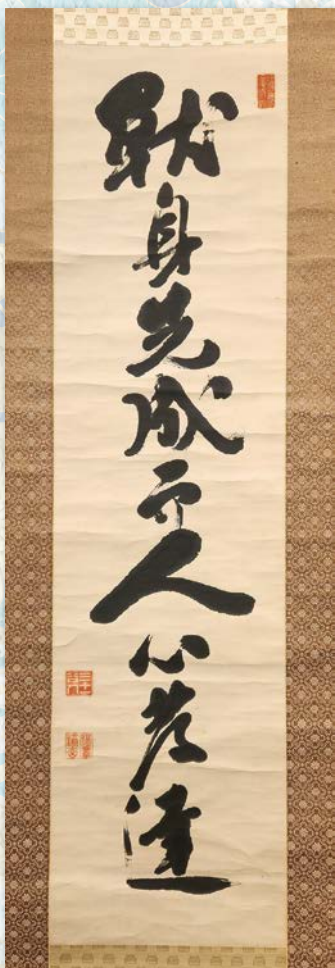 獣身先成而人心発達